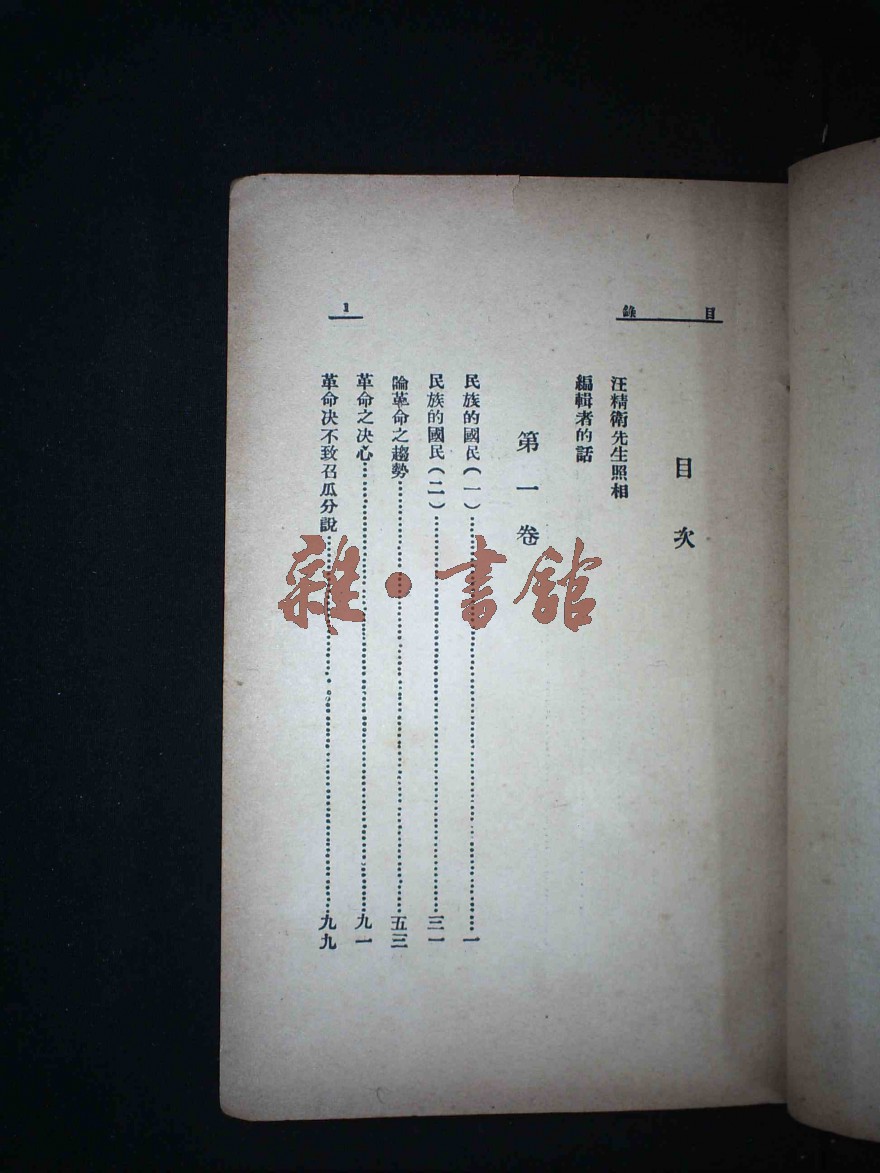 目錄
1
目次
汪精衛先生照相
編輯者的話
第一卷
民族的國民(一)⋯⋯⋯⋯一
民族的國民(二)⋯⋯⋯⋯三一
論革命之趨勢⋯⋯⋯⋯五三
革命之決心⋯⋯⋯⋯九一
革命決不致召瓜分說⋯⋯⋯⋯九九
雜·書館